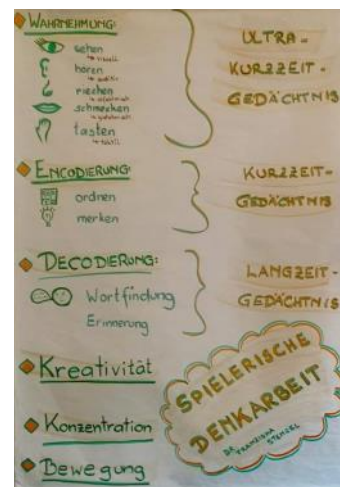 WAHRNEHMUNG:
sehen
↳ visuell
hören
↳ auditiv
riechen
↳ olfaktorisch
schmecken
↳ gustatorisch
tasten
↳ taktil
ULTRA-
KURZZEIT-
GEDÄCHTNIS
ENCODIERUNG:
ordnen
merken
KURZZEIT-
GEDÄCHTNIS
DECODIERUNG:
Wortfindung
Erinnerung
LANGZEIT-
GEDÄCHTNIS
Kreativität
Konzentration
Bewegung
SPIELERISCHE
DENKARBEIT
DR. FRANZISKA
STENGEL